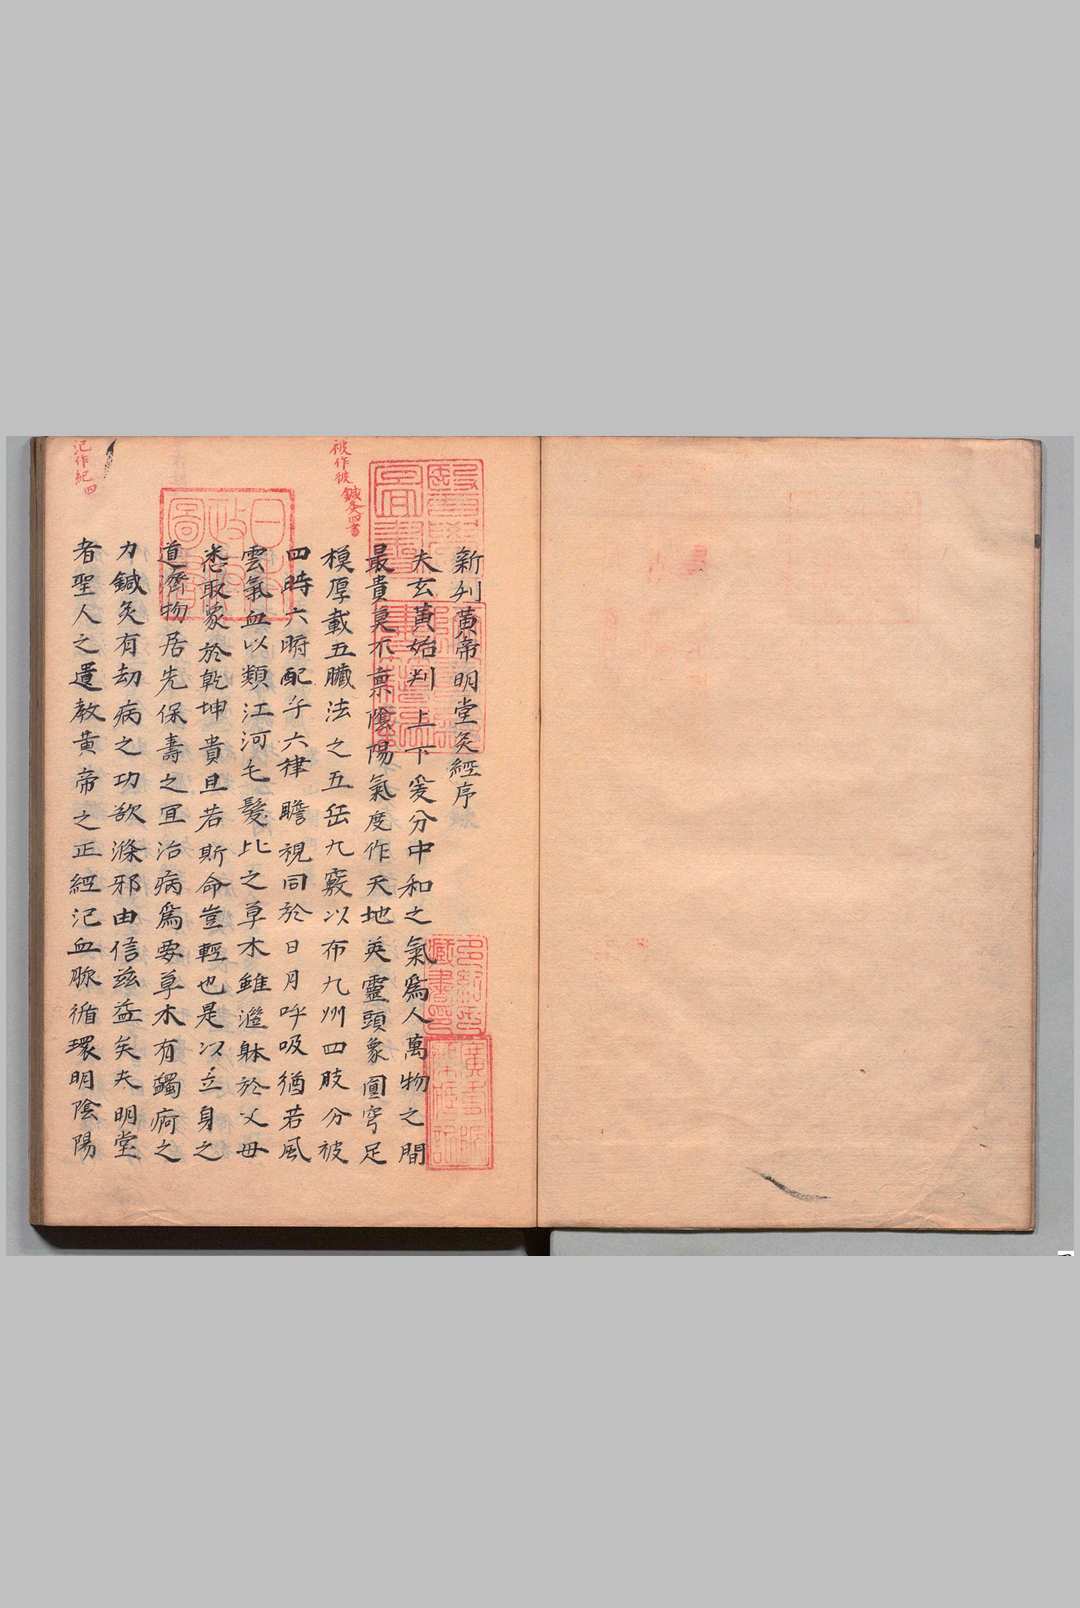 新刋黄帝明堂灸經序
夫玄黄始判上下爰分中和之氣爲人萬物之間
最貴莫不禀隂陽氣度作天地英靈頭象圓穹足
模厚載五臓法之五岳九竅以布九州四肢分被
四時六腑配乎六律瞻視同於日月呼吸猶若風
雲氣血以類江河毛髮比之草木雖滋躰於父母
悉取象於乾坤貴且若斯命豈輕也是以立身之
道濟物居先保壽之宜治病爲要草木有蠲疴之
力鍼灸有劫病之功欲滌邪由信兹益矣夫明堂
者聖人之遺教黄帝之正經記血脉循環明隂陽
被作彼
鍼灸四書
記作紀
四
日本
政府
圖書